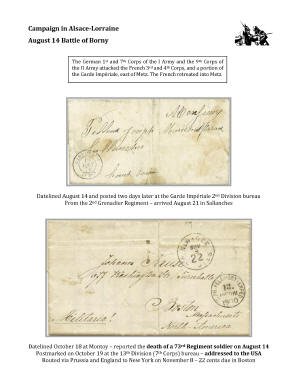 Campaign in Alsace-Lorraine
August 14 Battle of Borny
The German 1st and 7th Corps of the I Army and the 9th Corps of
the II Army attacked the French 3rd and 4th Corps, and a portion of
the Garde Impériale, east of Metz. The French retreated into Metz
Datelined August 14 and posted two days later at the Garde Impériale 2nd Division bureau
From the 2nd Grenadier Regiment – arrived August 21 in Sallanches
22
Boston
Massachusetts
North America
Datelined October 18 at Montoy – reported the death of a 73rd Regiment soldier on August 14
Postmarked on October 19 at the 13th Division (7th Corps) bureau – addressed to the USA
Routed via Prussia and England to New York on November 8 – 22 cents due in Boston